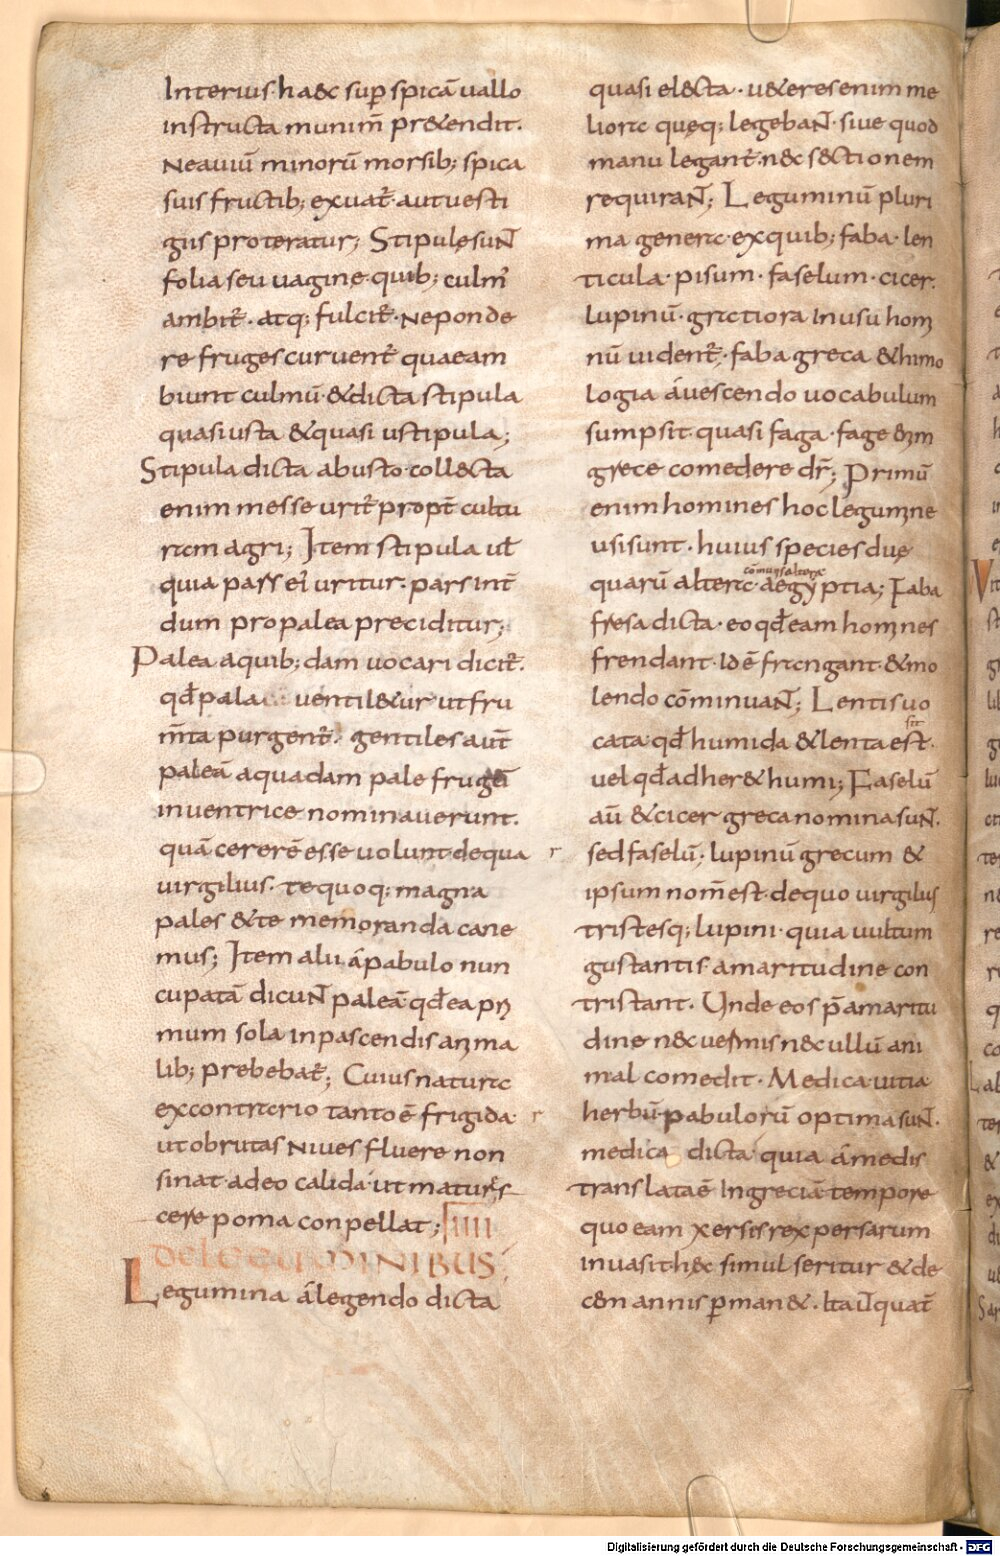 Interius· haec sup̄ spicā uallo
instructa munim̄ pr&endit·
Ne auiū minorū morsib; spica
suis fructib; exuat̄· aut uesti
giis proteratur; Stipulę suɴt
folia seu uagine· quib; culm̄
ambit̄· atq; fulcit̄· Ne ponde
re fruges curuent̄ quae am
biunt culmū· & dicta stipula
quasi usta & quasi ustipula;
Stipula dicta ab usto· coll&cta
enim messe urit̄ propt̄ cultu
ram agri; Item stipula ul̄
quia pars ei᾽ uritur· pars int̄
dum pro palea preciditur;
Palea a quib;dam uocari dicit̄·
qđ pala uentil&ur ut fru
m̄ta purgent̄· gentiles aut̄
paleā a quadam pale frugū
inuentrice nominauerunt·
quā cererē esse uolunt· de qua
uirgilius· te quoq; magna
pales & te memoranda cane
mus; Item alii á pabulo nun
cupatā dicuɴt paleā· qđ ea pri
mum sola in pascendis anima
lib; prebebat̄; Cuius natura
ex contrario tanto ē frigida·
ut obrutas niues fluere non
sinat· adeo calida· ut matures
cere poma conpellat; IIII
DE LEGUMINIBUS;
Legumina á legendo dicta
quasi el&cta· u&eres enim me
liora quęq; legebaɴt· siue quod
manu legant̄· nec s&ctionem
requiraɴt; Leguminū pluri
ma genera· ex quib; faba· len
ticula· pisum· faselum· cicer·
lupinū· gratiora in usu homi
nū uident̄· faba greca &himo
logia á uescendo uocabulum
sumpsit· quasi faga· fage &im
grece comedere dr̄; Primū
enim homines hoc legumine
usi sunt· huius species duę
quarū altera cōmunis altera aegyptia; Faba
fresa dicta· eo qđ eam homines
frendant· id ē frangant· & mo
lendo cōminuaɴt; Lentis uo
cata· qđ humida & lenta est sit·
uel qđ adher& humi; Faselū
aū & cicer greca nomina suɴt·
r sed faselū; lupinū grecum &
ipsum nom̄ est· de quo uirgilius
tristesq; lupini· quia uultum
gustantis amaritudine con
tristant· Unde eos p̄ amaritu
dine nec uermis nec ullū ani
mal comedit· Medica uitia
r herbū pabulorū optima suɴt·
medica dicta quia á medis
translata ē In greciā tempore
quo eam xersis rex persarum
inuasit· hęc simul seritur & de
c&m annis p̄man&· Ita ū quat̄
Digitalisierung gefördert durch die Deutsche Forschungsgemeinschaft - DFG